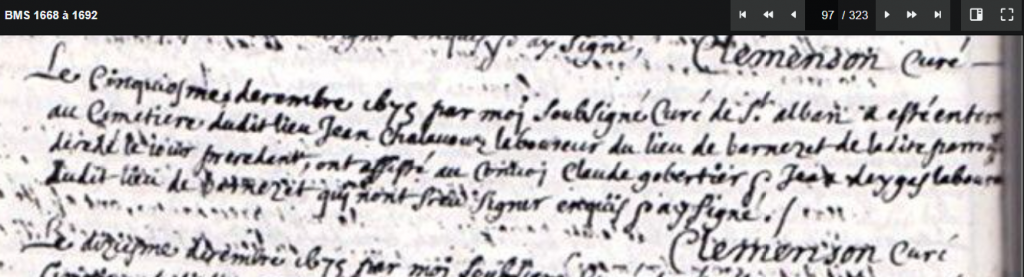 BMS 1668 à 1692
97 / 323
enquis & ay signé, Clemenson Curé
Le Cinquiesme decembre 1675 par moj soubsigné Curé de St. alban a esté enterr
au Cemetiere dudit lieu Jean Chalavour laboureur du lieu de barnezet de ladite parro
décédé le iour precedent, ont assisté au Convoj Claude gobertier & Jean deygas laboure
dudit lieu de barnezet qui n'ont sceu signer enquis & ay signé.
Clemenson Curé
Le dixiesme decembre 1675 par moj soubsigné